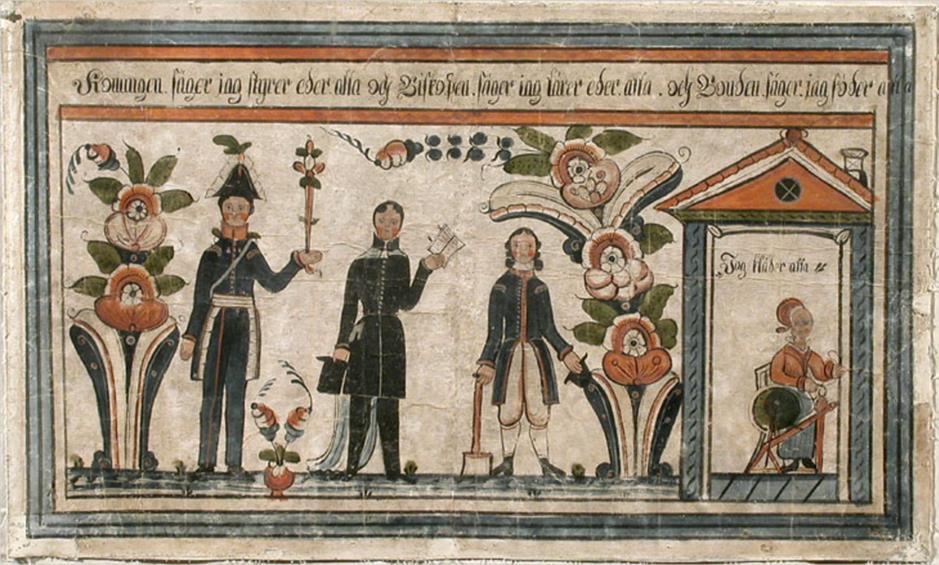 Konungen. säger iag styrer eder alla och Biskopen. säger iag lärer eder. alla. och Bonden. säger. iag föder alla
Jag kläder alla